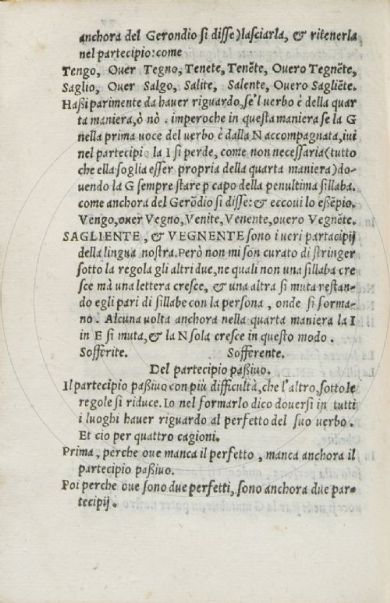 anchora del Gerondio si disse) lasciarla, & ritenerla
nel partecipio: come
Tengo, Ouer Tegno, Tenete, Tenēte, Ouero Tegnēte.
Saglio, Ouer Salgo, Salite, Salente, Ouero Sagliēte.
Hassi parimente da hauer riguardo, se'l uerbo è della quar
ta maniera, ò nò. imperoche in questa maniera se la G
nella prima uoce del uerbo è dalla N accompagnata, iui
nel partecipi la I si perde, come non necessaria (tutto
che ella soglia esser propria della quarta maniera) do-
uendo la G sempre stare p capo della penultima sillaba.
come anchora del Gerōdio si disse: & eccoui lo essēpio.
Vengo, ouer Vegno, Venite, Venente, ouero Vegnēte.
SAGLIENTE, & VEGNENTE sono i ueri partacipij
della lingua nostra. Però non mi son curato di stringer
sotto la regola gli altri due, ne quali non una sillaba cre
sce mà una lettera cresce, & una altra si muta restan-
do egli pari di sillabe con la persona, onde si forma-
no. Alcuna uolta anchora nella quarta maniera la I
in E si muta, & la N sola cresce in questo modo.
Sofferite. Sofferente.
Del partecipio passiuo.
Il partecipio passiuo con più difficultà, che l'altro, sotto le
regole si riduce. Io nel formarlo dico douersi in tutti
i luoghi hauer riguardo al perfetto del suo uerbo.
Et cio per quattro cagioni.
Prima, perche oue manca il perfetto, manca anchora il
partecipio passiuo.
Poi perche oue sono due perfetti, sono anchora due par-
tecipij.